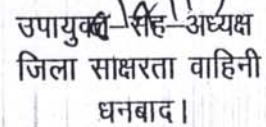 उपायुक्त-सह-अध्यक्ष
जिला साक्षरता वाहिनी
धनबाद।